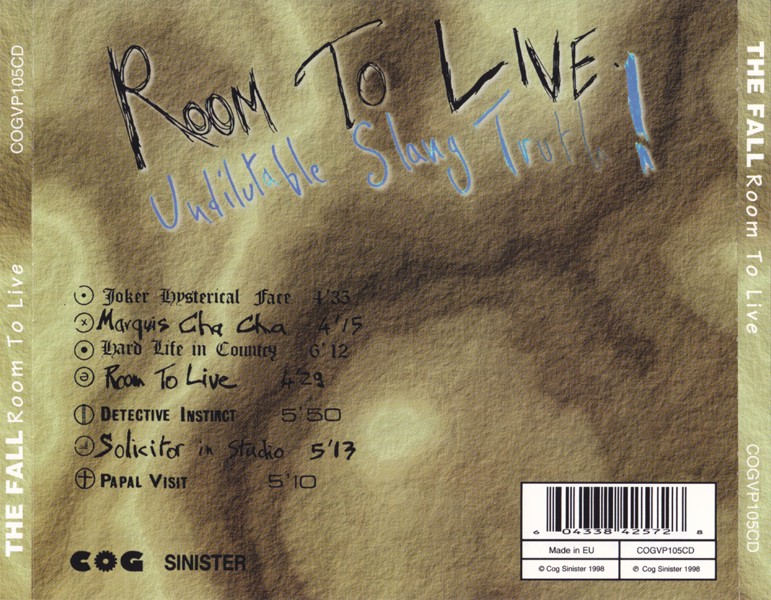 COGVP105CD
THE FALL Room To Live
ROOM TO LIVE
Undilutable Slang Truth!
Joker Hysterical Face 4'35
Marquis Cha Cha 4'15
Hard Life in Country 6'12
Room To Live 4'29
DETECTIVE INSTINCT 5'50
Solicitor in Studio 5'13
PAPAL VISIT 5'10
COG SINISTER
6 04338 42572 8
Made in EU COGVP105CD
© Cog Sinister 1998 ℗ Cog Sinister 1998
THE FALL Room To Live
COGVP105CD